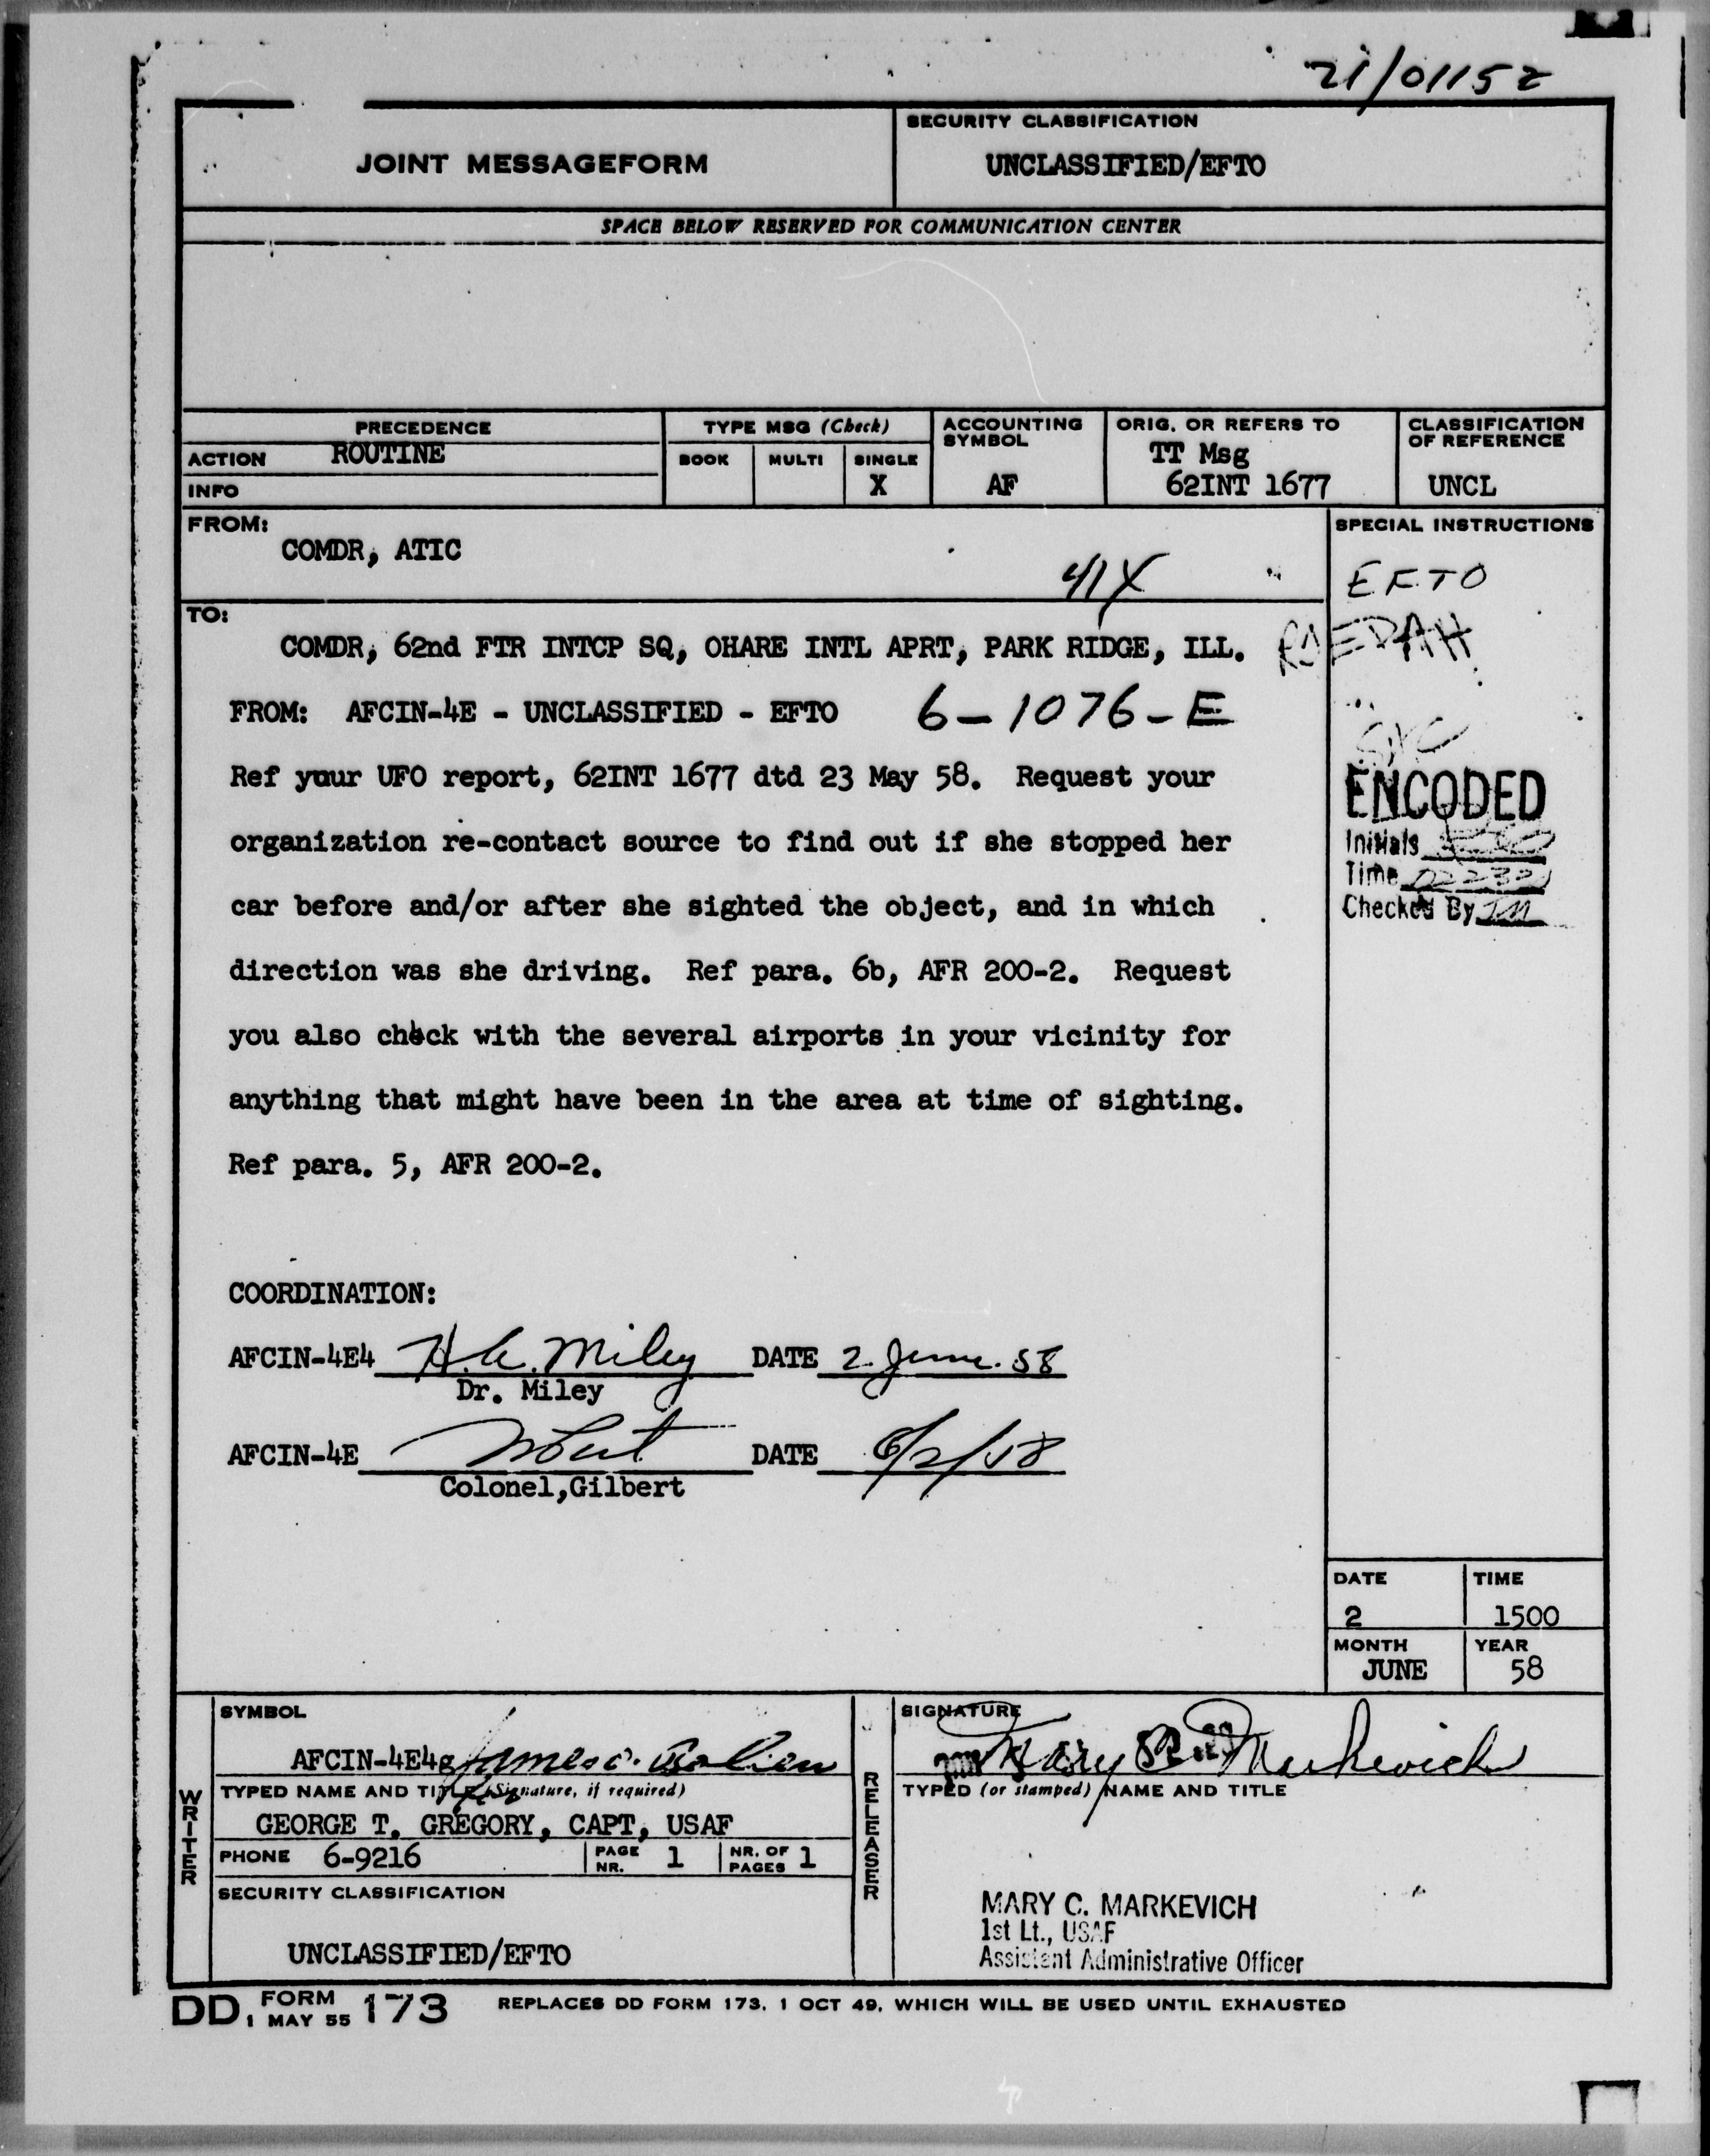 21/0115Z
JOINT MESSAGEFORM
SECURITY CLASSIFICATION
UNCLASSIFIED/EFTO
SPACE BELOW RESERVED FOR COMMUNICATION CENTER
PRECEDENCE
ACTION ROUTINE
INFO
TYPE MSG (Check)
BOOK MULTI SINGLE
X
ACCOUNTING
SYMBOL
AF
ORIG. OR REFERS TO
TT Msg
62INT 1677
CLASSIFICATION
OF REFERENCE
UNCL
FROM:
COMDR, ATIC
41X
SPECIAL INSTRUCTIONS
EFTO
RJEDAH
TO:
COMDR, 62nd FTR INTCP SQ, OHARE INTL APRT, PARK RIDGE, ILL.
FROM: AFCIN-4E - UNCLASSIFIED - EFTO 6-1076-E
Ref yuur UFO report, 62INT 1677 dtd 23 May 58. Request your
organization re-contact source to find out if she stopped her
car before and/or after she sighted the object, and in which
direction was she driving. Ref para. 6b, AFR 200-2. Request
you also check with the several airports in your vicinity for
anything that might have been in the area at time of sighting.
Ref para. 5, AFR 200-2.
ENCODED
Initials
Time
Checked By JM
COORDINATION:
AFCIN-4E4 H.C. Miley DATE 2 June 58
Dr. Miley
AFCIN-4E DATE 6/2/58
Colonel,Gilbert
DATE TIME
2 1500
MONTH YEAR
JUNE 58
WRITER
SYMBOL
AFCIN-4E4g
TYPED NAME AND TITLE (Signature, if required)
GEORGE T. GREGORY, CAPT, USAF
PHONE 6-9216 PAGE NR. 1 NR. OF PAGES 1
SECURITY CLASSIFICATION
UNCLASSIFIED/EFTO
RELEASER
SIGNATURE
Mary C. Markevich
TYPED (or stamped) NAME AND TITLE
MARY C. MARKEVICH
1st Lt., USAF
Assistant Administrative Officer
DD FORM 1 MAY 55 173 REPLACES DD FORM 173, 1 OCT 49, WHICH WILL BE USED UNTIL EXHAUSTED